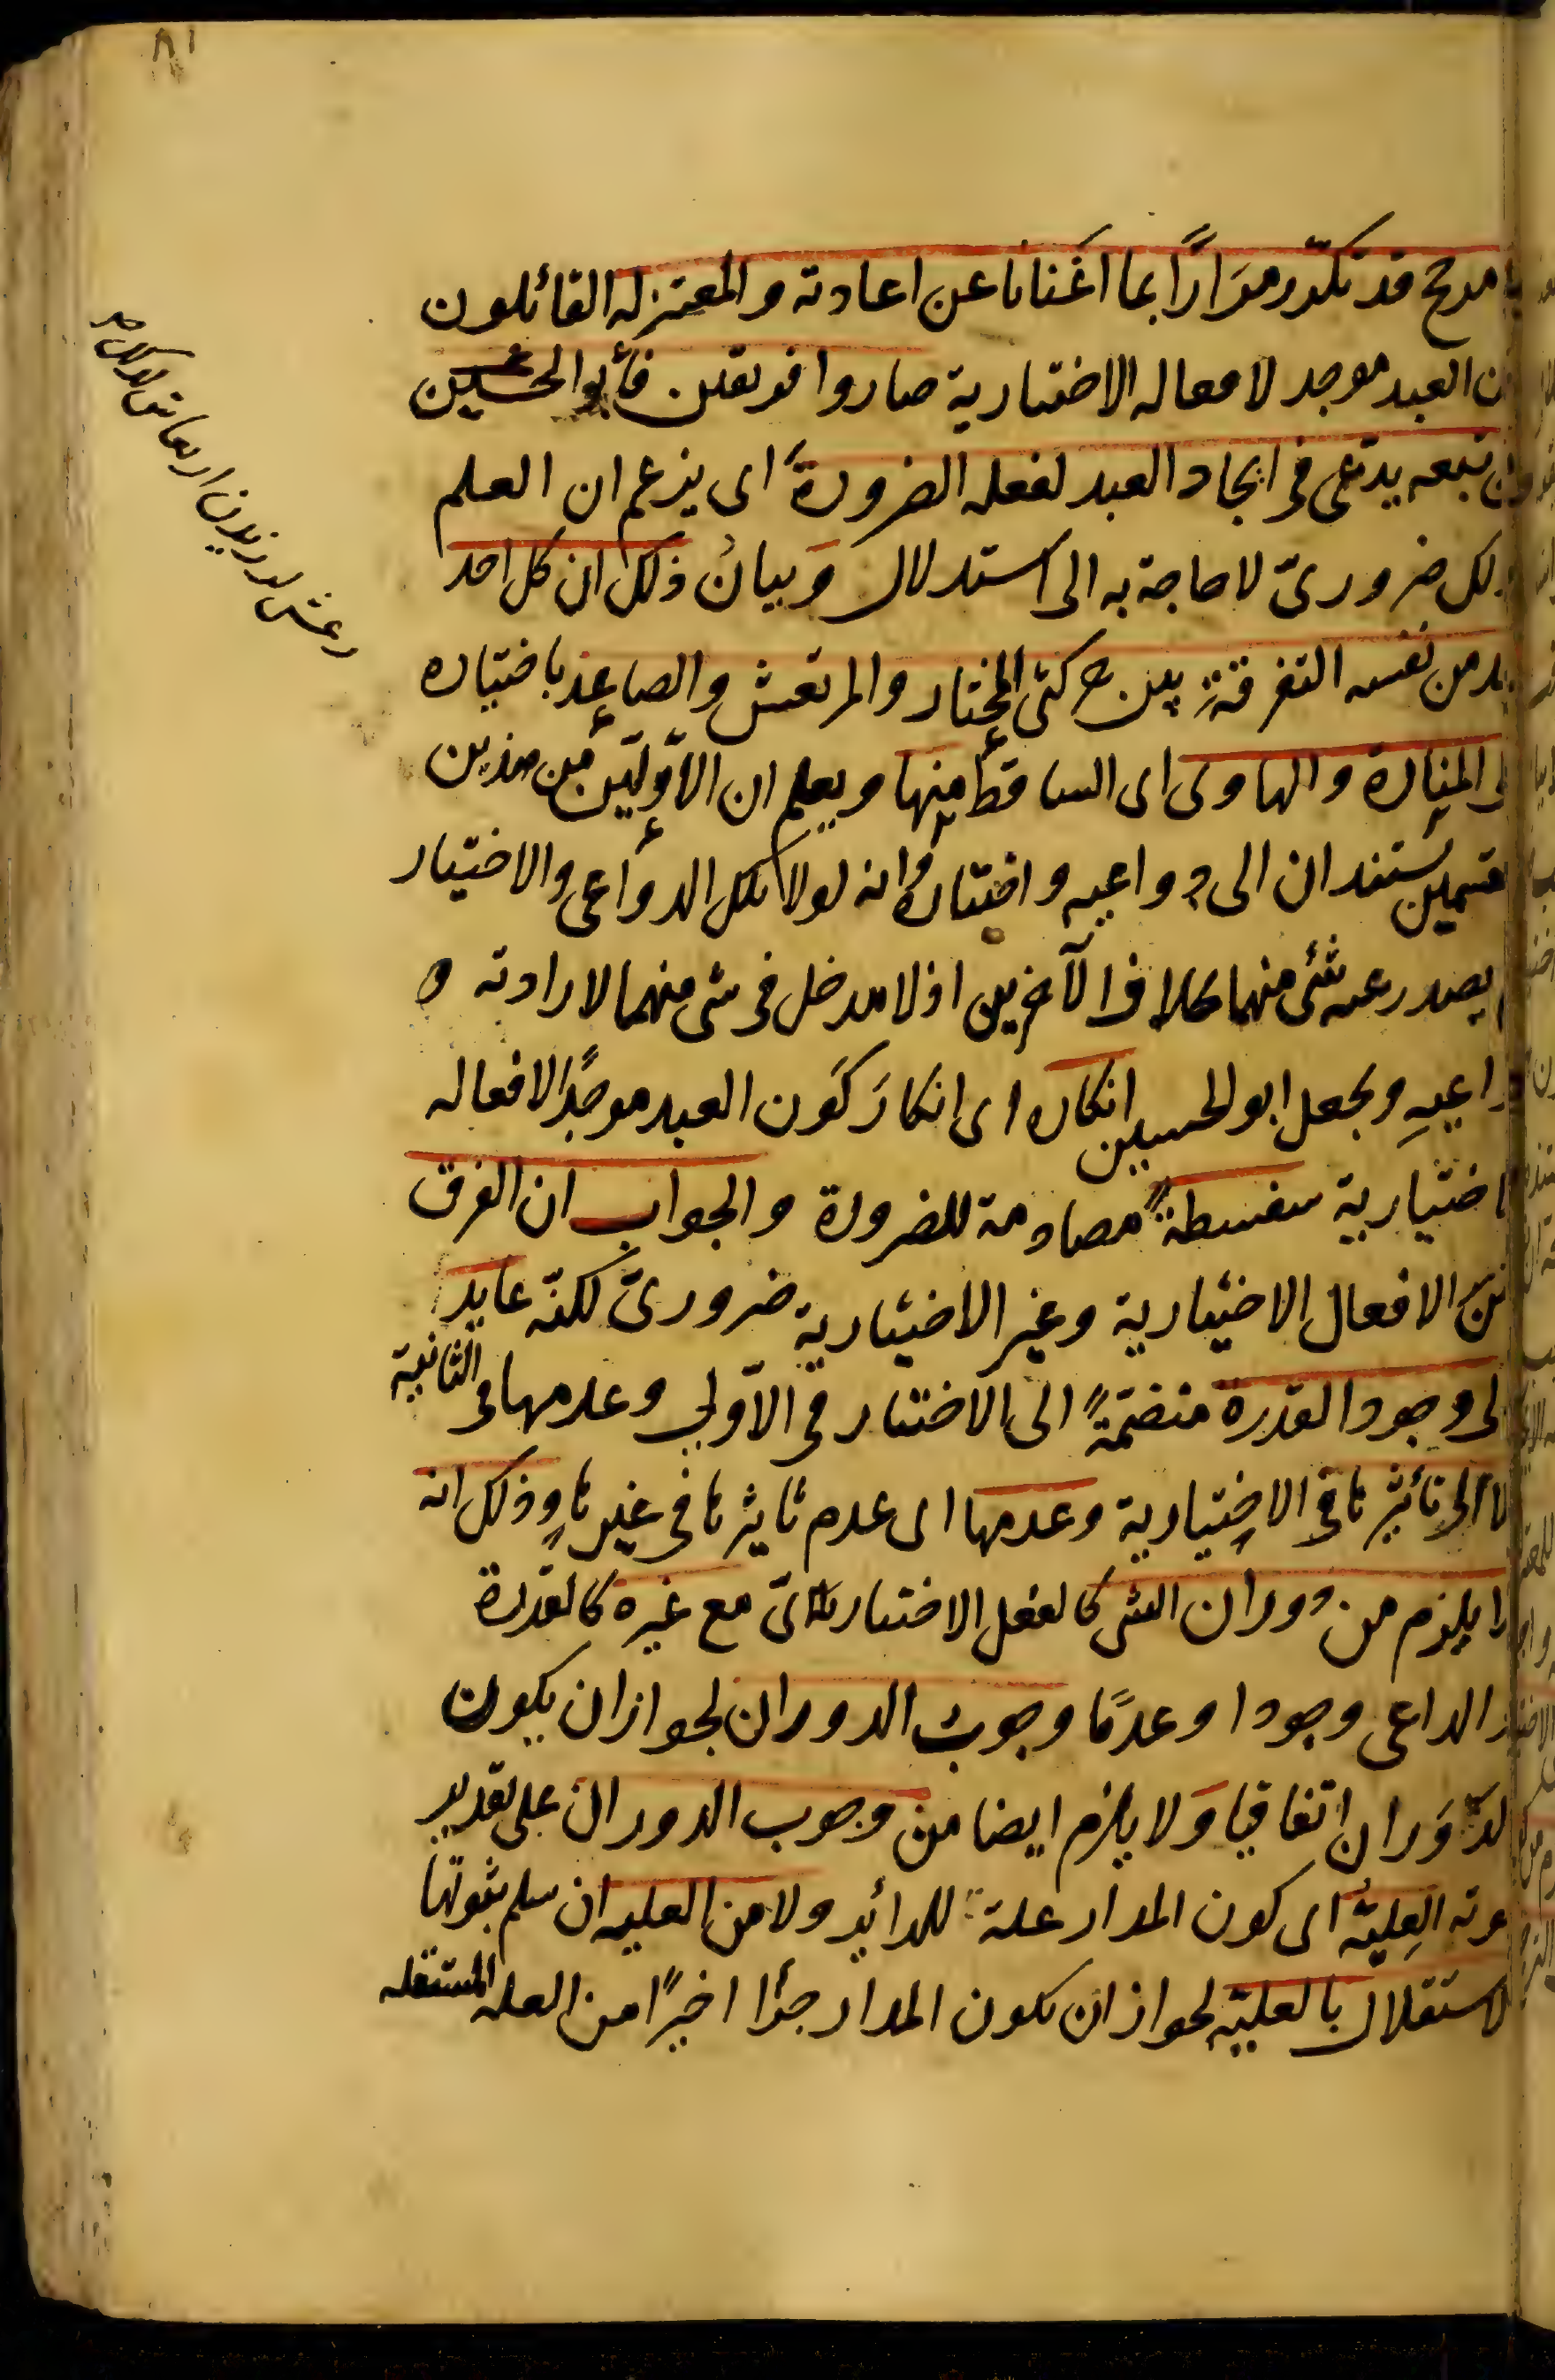 ٨١
مرجح قد تكرّر مرَارًا بما اغَنانا عن اعادته والمعتزله القائلون
العبد موجد لافعاله الاختيارية صاروا فريقين فأبو الحسين
تبعه يدّعى فى ايجاد العبد لفعله الضرورةَ اى يزعم ان العلم
ذلك ضرورىّ لا حاجة به الى استدلال وَبيانُ ذلك ان كل احد
يجد من نفسه التفرقة بين حركتى المختار والمرتعش والصاعد باختياره
الى المنارة والهاوى اى الساقط منها ويعلم ان الأوّلَيَن من هذين
القسمين مستندان الى دواعيه واختياره وانه لولا تلك الدواعى والاختيار
لم يصدر عنه شئ منهما بخلاف الآخرين اذ لا مدخل فى شى منهما لارادته و
دواعيهِ ويجعل ابو الحسيين انكاره اى انكارَ كَون العبد موجدًا لافعاله
الاختيارية سفسطةً مصادمة للضرورة والجواب ان الفرق
بين الافعال الاختيارية وغير الاختيارية ضرورىّ لكنّه عايد
الى وجود القدرة منضمّةً الى الاختيار فى الاولى وعدمها فى الثانية
لا الى تأثيرها فى الاختيارية وعدمها اى عدم تاثيرها فى غيرها وذلك انه
لا يلزم من دوران الشى كالفعل الاختيارىّ مع غيره كالقدرة
والداعى وجودا وعدمًا وجوبُ الدوران لجواز ان يكون
الدّوَران اتفاقيا وَلا يلزم ايضا من وجوب الدوران على تقدير
ثبوته العِليّة اى كون المدار علة للدائر ولا من العليه ان سلم ثبوتها
الاستقلال بالعليّة لجواز ان يكون المدار جزأ اخيرًا من العله المستقله